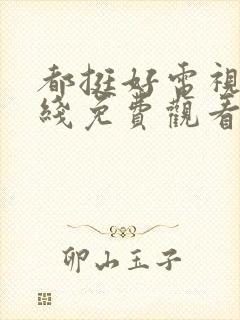 都挺好電視
綫免費觀看
卯山玉子